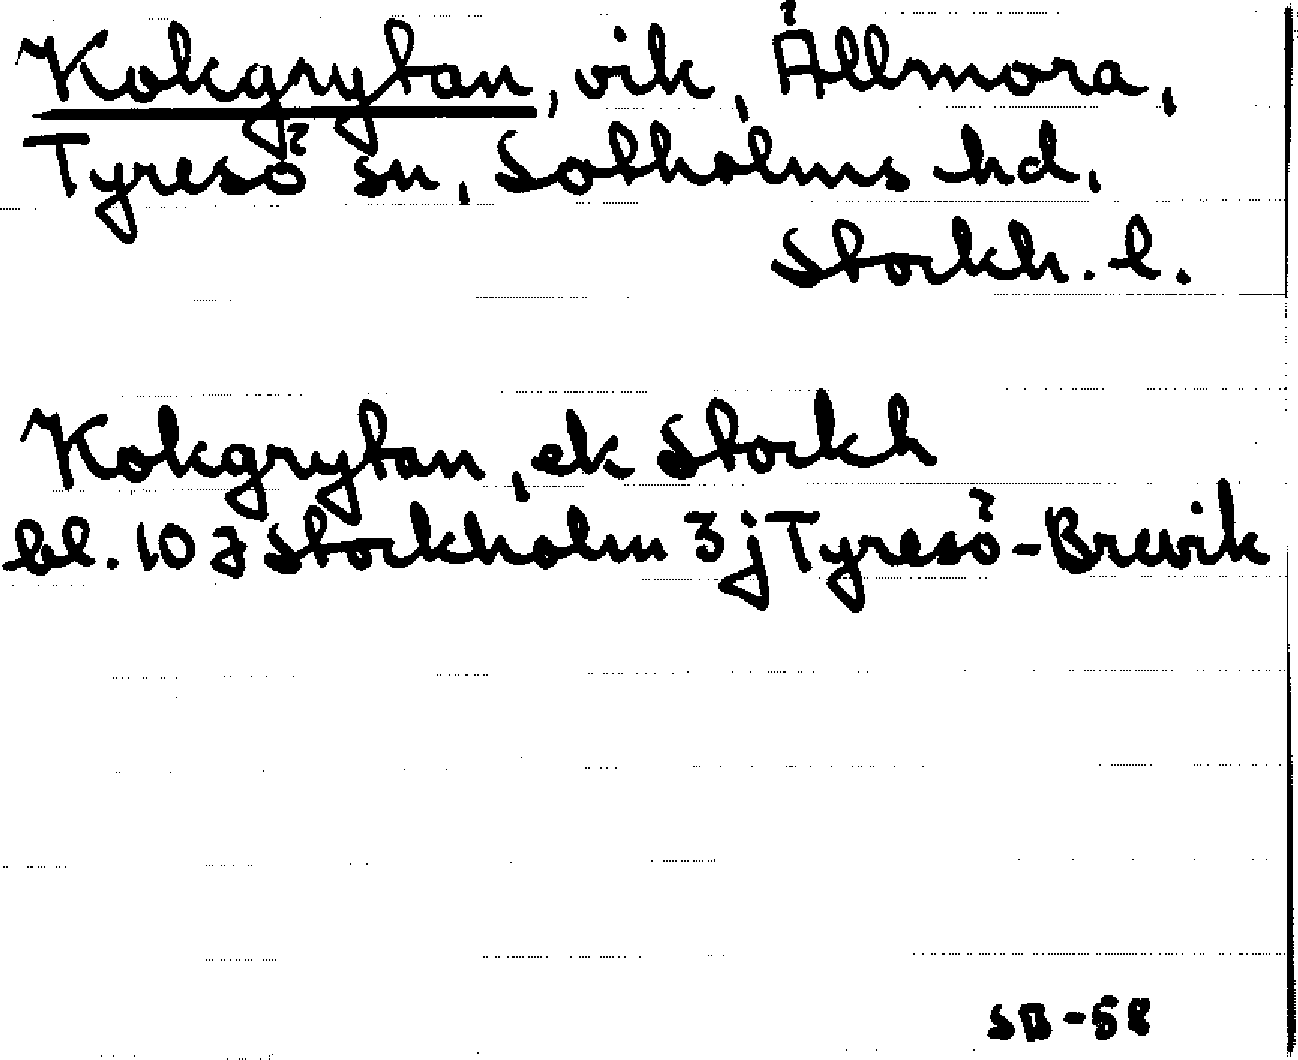 Kokgrytan, vik, Ällmora,
Tyresö sn, Sotholms hd.
Stockh. l.
Kokgrytan, ek Stockh
bl. 10 J Stockholm 3 j Tyresö-Brevik
SB-58